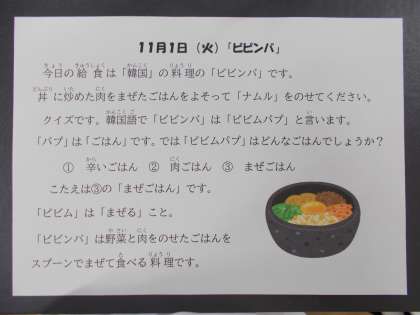 11月1日（火）「ビビンバ」
今日の給食は「韓国」の料理の「ビビンバ」です。
丼に炒めた肉をまぜたごはんをよそって「ナムル」をのせてください。
クイズです。韓国語で「ビビンバ」は「ビビムバブ」と言います。
「バブ」は「ごはん」です。では「ビビムバブ」はどんなごはんでしょうか？
① 辛いごはん ② 肉ごはん ③ まぜごはん
こたえは③の「まぜごはん」です。
「ビビム」は「まぜる」こと。
「ビビンバ」は野菜と肉をのせたごはんを
スプーンでまぜて食べる料理です。